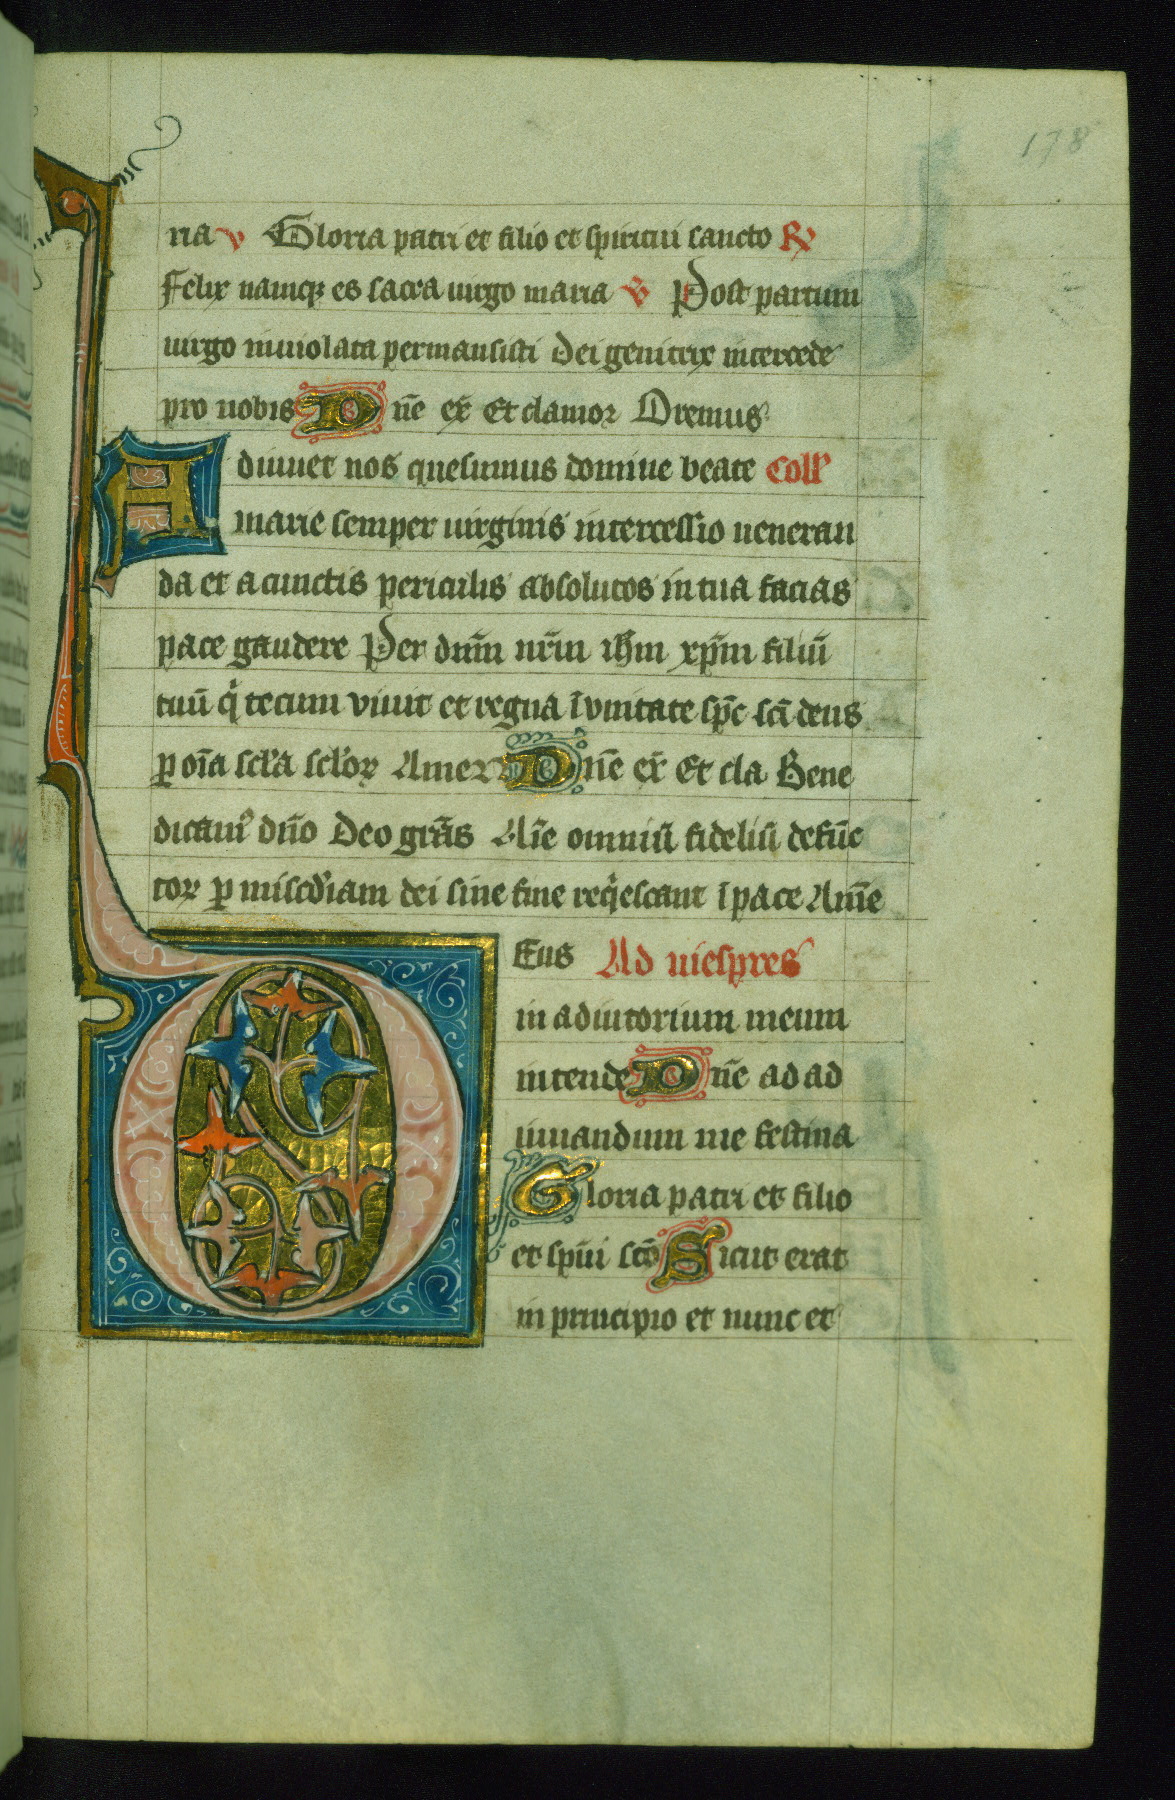 178
ria v Gloria patri et filio et spiritui sancto R
Felix namq; es sacra uirgo maria V Post partum
uirgo inuiolata permansisti Dei genitrix intercede
pro nobis Dn̄e ex̄ Et clamor Oremus
Adiuuet nos quesumus domine beate Coll'
marie semper uirginis intercessio ueneran
da et a cunctis periculis absolutos in tua facias
pace gaudere Per dn̄m nr̄m ih̄m xp̄m filiū
tuū qͥ tecum viuit et regna ī vnitate sp̄c sc̄i deus
ꝑ oīa scl'a scl'oꝝ Amen Dn̄e ex̄ Et cla Bene
dicamꝰ dn̄o Deo gr̄as Aīe omniū fideliū defūc
tor ꝑ misc̄diam dei sine fine reqͥescant ī pace Ame̅
Deus Ad uiespres
in adiutorium meum
intende Dn̄e ad ad
iuuandum me festina
Gloria patri et filio
et sp̄ui sc̄o Sicut erat
in principio et nunc et